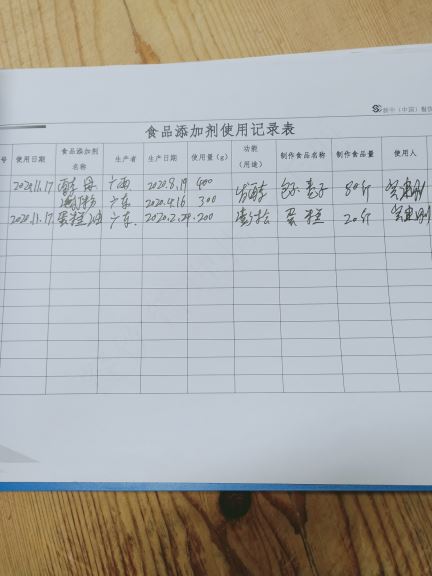 新中（中国）餐饮
食品添加剂使用记录表
号 使用日期 食品添加剂名称 生产者 生产日期 使用量（g） 功能（用途） 制作食品名称 制作食品量 使用人
2020.11.17 酵母 广西 2020.8.19 400 发酵 包子 80斤
广东 2020.4.16 300
2020.11.17 蛋糕油 广东 2020.2.29 200 蛋糕 20斤